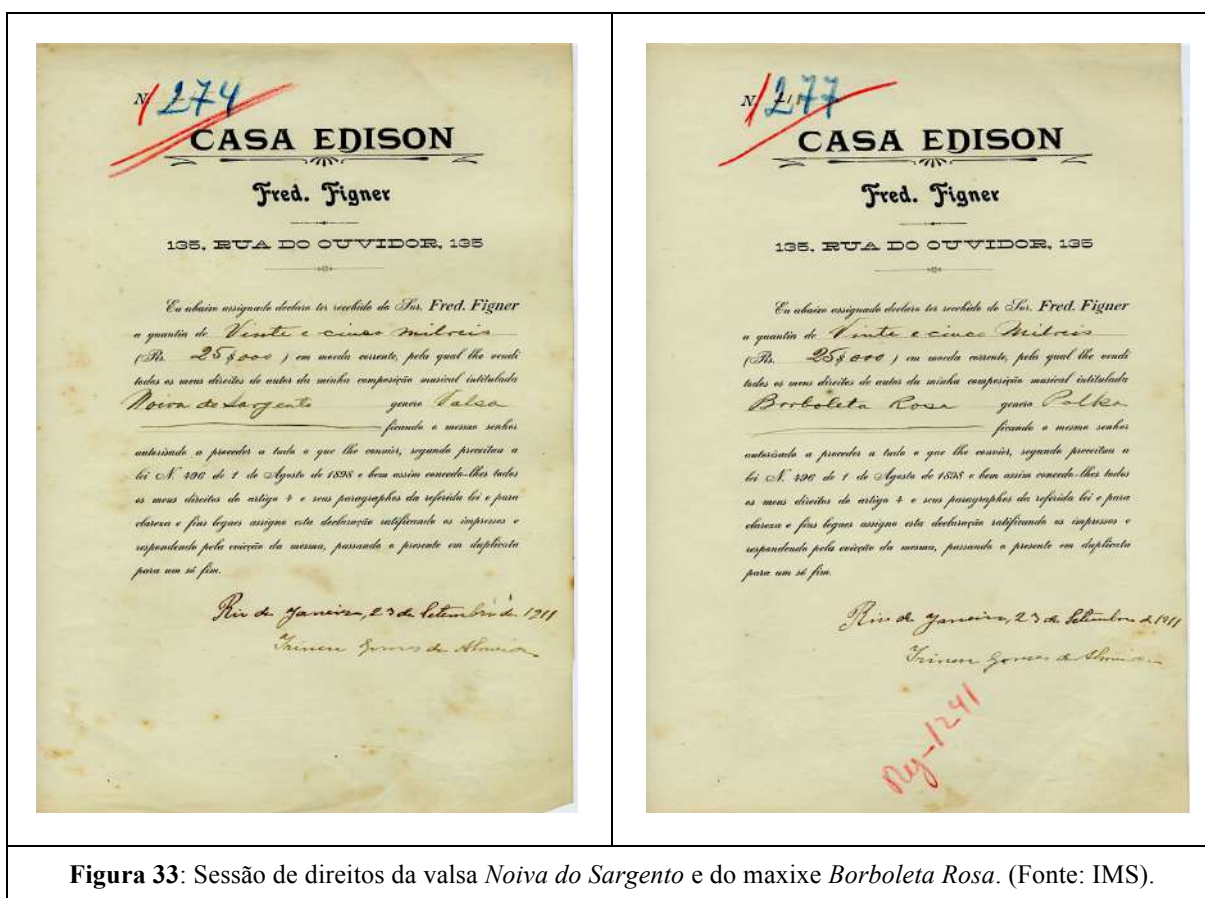 N 274
CASA EDISON
Fred. Figner
135, RUA DO OUVIDOR, 135
Eu abaixo assignado declaro ter recebido do Snr. Fred. Figner
a quantia de Vinte e cinco milreis
(Rs. 25$000 ) em moeda corrente, pela qual lhe vendi
todos os meus direitos de autor da minha composição musical intitulada
Noiva do Sargento genero Valsa
ficando o mesmo senhor
autorisado a proceder a tudo o que lhe convier, segundo preceitua a
lei N. 496 de 1 de Agosto de 1898 e bem assim concedo-lhes todos
os meus direitos do artigo 4 e seus paragraphos da referida lei e para
clareza e fins legaes assigno esta declaração ratificando os impressos e
respondendo pela evicção da mesma, passando o presente em duplicata
para um só fim.
Rio de Janeiro, 23 de Setembro de 1911
Irineu Gomes de Almeida
N 277
CASA EDISON
Fred. Figner
135, RUA DO OUVIDOR, 135
Eu abaixo assignado declaro ter recebido do Snr. Fred. Figner
a quantia de Vinte e cinco Milreis
(Rs. 25$000 ) em moeda corrente, pela qual lhe vendi
todos os meus direitos de autor da minha composição musical intitulada
Borboleta Rosa genero Polka
ficando o mesmo senhor
autorisado a proceder a tudo o que lhe convier, segundo preceitua a
lei N. 496 de 1 de Agosto de 1898 e bem assim concedo-lhes todos
os meus direitos do artigo 4 e seus paragraphos da referida lei e para
clareza e fins legaes assigno esta declaração ratificando os impressos e
respondendo pela evicção da mesma, passando o presente em duplicata
para um só fim.
Rio de Janeiro, 23 de Setembro de 1911
Irineu Gomes de Almeida
Reg-1241
Figura 33: Sessão de direitos da valsa Noiva do Sargento e do maxixe Borboleta Rosa. (Fonte: IMS).